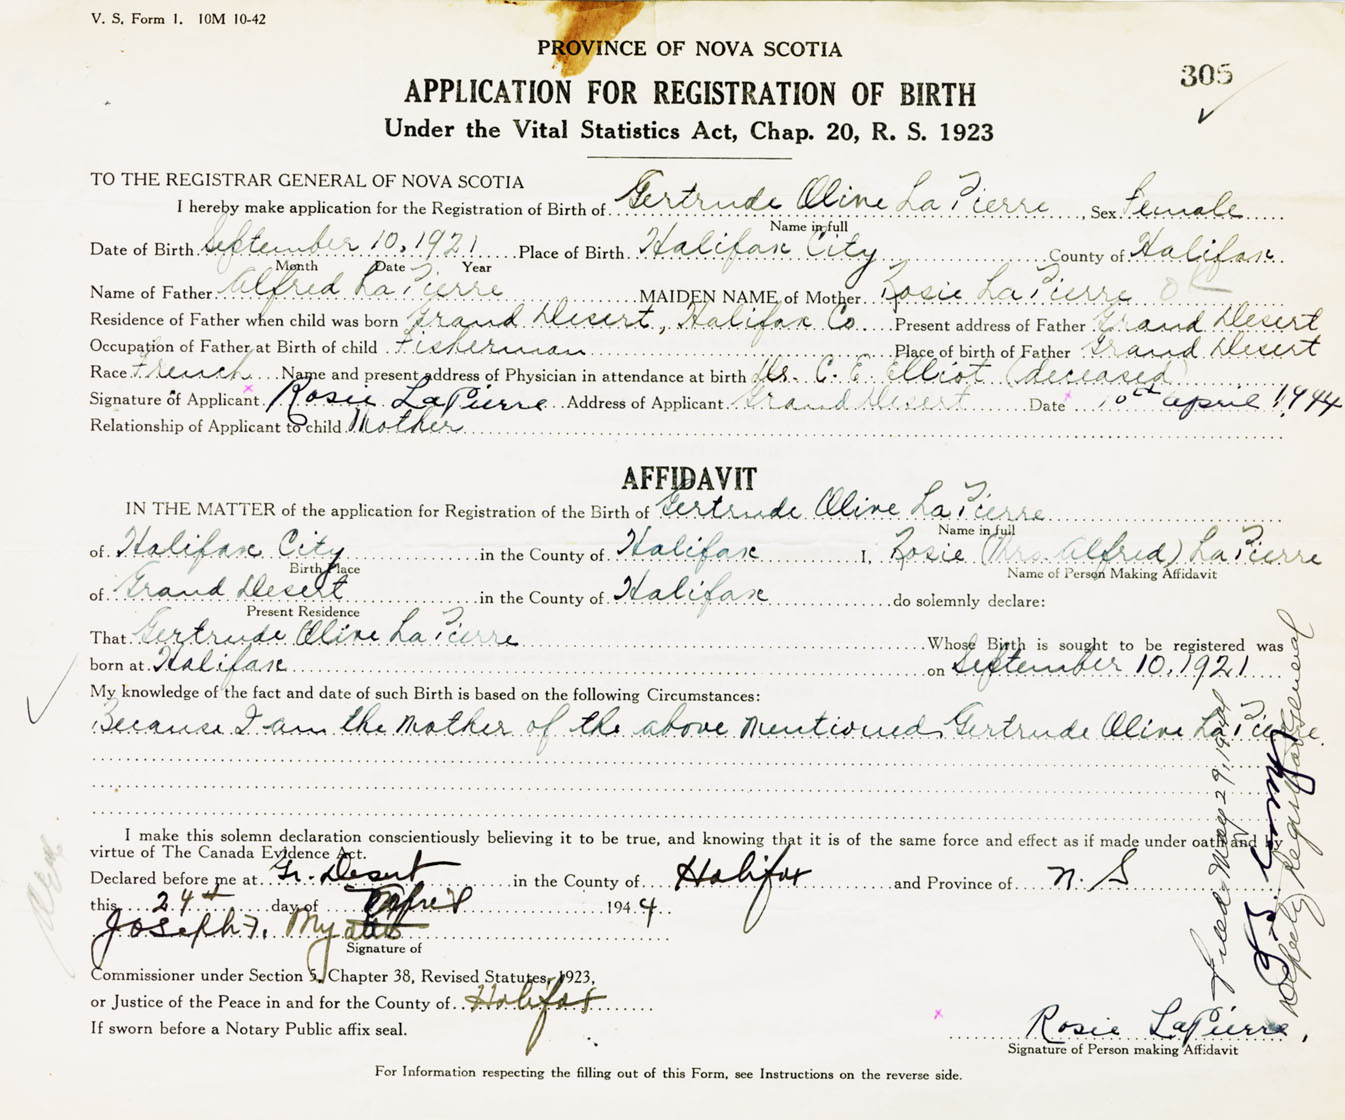 V. S. Form 1. 10M 10-42
PROVINCE OF NOVA SCOTIA
305
APPLICATION FOR REGISTRATION OF BIRTH
Under the Vital Statistics Act, Chap. 20, R. S. 1923
TO THE REGISTRAR GENERAL OF NOVA SCOTIA
I hereby make application for the Registration of Birth of Gertrude Olive La Pierre, Sex Female
Name in full
Date of Birth September 10, 1921 Place of Birth Halifax City County of Halifax
Month Date Year
Name of Father Alfred La Pierre MAIDEN NAME of Mother Rosie La Pierre OK
Residence of Father when child was born Grand Desert, Halifax Co. Present address of Father Grand Desert
Occupation of Father at Birth of child Fisherman Place of birth of Father Grand Desert
Race French Name and present address of Physician in attendance at birth Dr. C. E. Elliot (deceased)
Signature of Applicant Rosie LaPierre Address of Applicant Grand Desert Date 10th April 1944
Relationship of Applicant to child Mother
AFFIDAVIT
IN THE MATTER of the application for Registration of the Birth of Gertrude Olive La Pierre
Name in full
of Halifax City in the County of Halifax I, Rosie (Mrs. Alfred) La Pierre
Birth Place Name of Person Making Affidavit
of Grand Desert in the County of Halifax do solemnly declare:
Present Residence
That Gertrude Olive La Pierre Whose Birth is sought to be registered was
born at Halifax on September 10, 1921
My knowledge of the fact and date of such Birth is based on the following Circumstances:
Because I am the Mother of the above mentioned, Gertrude Olive La Pierre.
I make this solemn declaration conscientiously believing it to be true, and knowing that it is of the same force and effect as if made under oath and by
virtue of The Canada Evidence Act.
Declared before me at Gr. Desert in the County of Halifax and Province of N. S
this 24th day of April 1944.
Joseph F. Myatte
Signature of
Commissioner under Section 5, Chapter 38, Revised Statutes, 1923,
or Justice of the Peace in and for the County of Halifax
If sworn before a Notary Public affix seal.
Rosie LaPierre,
Signature of Person making Affidavit
For Information respecting the filling out of this Form, see Instructions on the reverse side.
Filed May 29, 1944
Deputy Registrar General